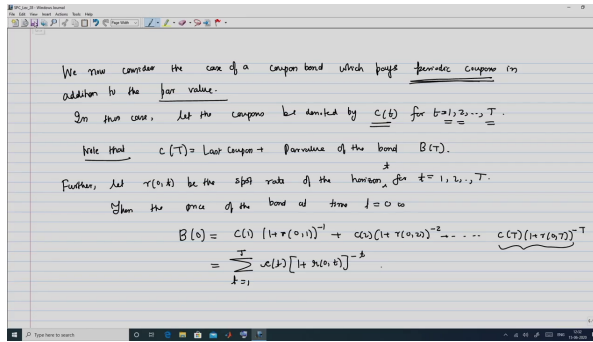 SPC_Lec_28 - Windows Journal
File Edit View Insert Actions Tools Help
Page Width
We now consider the case of a coupon bond which pays periodic coupons in
addition to the par value.
In this case, let the coupons be denoted by C(t) for t=1,2,..,T.
Note that C(T) = Last Coupon + Par value of the bond B(T).
Further, let r(0,t) be the spot rate of the horizon t for t = 1, 2,.., T.
Then the price of the bond at time t=0 is
B(0) = C(1) (1+r(0,1))^{-1} + C(2)(1+r(0,2))^{-2} + ..... C(T)(1+r(0,T))^{-T}
= \sum_{t=1}^{T} c(t) [1+r(0,t)]^{-t}.
Type here to search
ENG